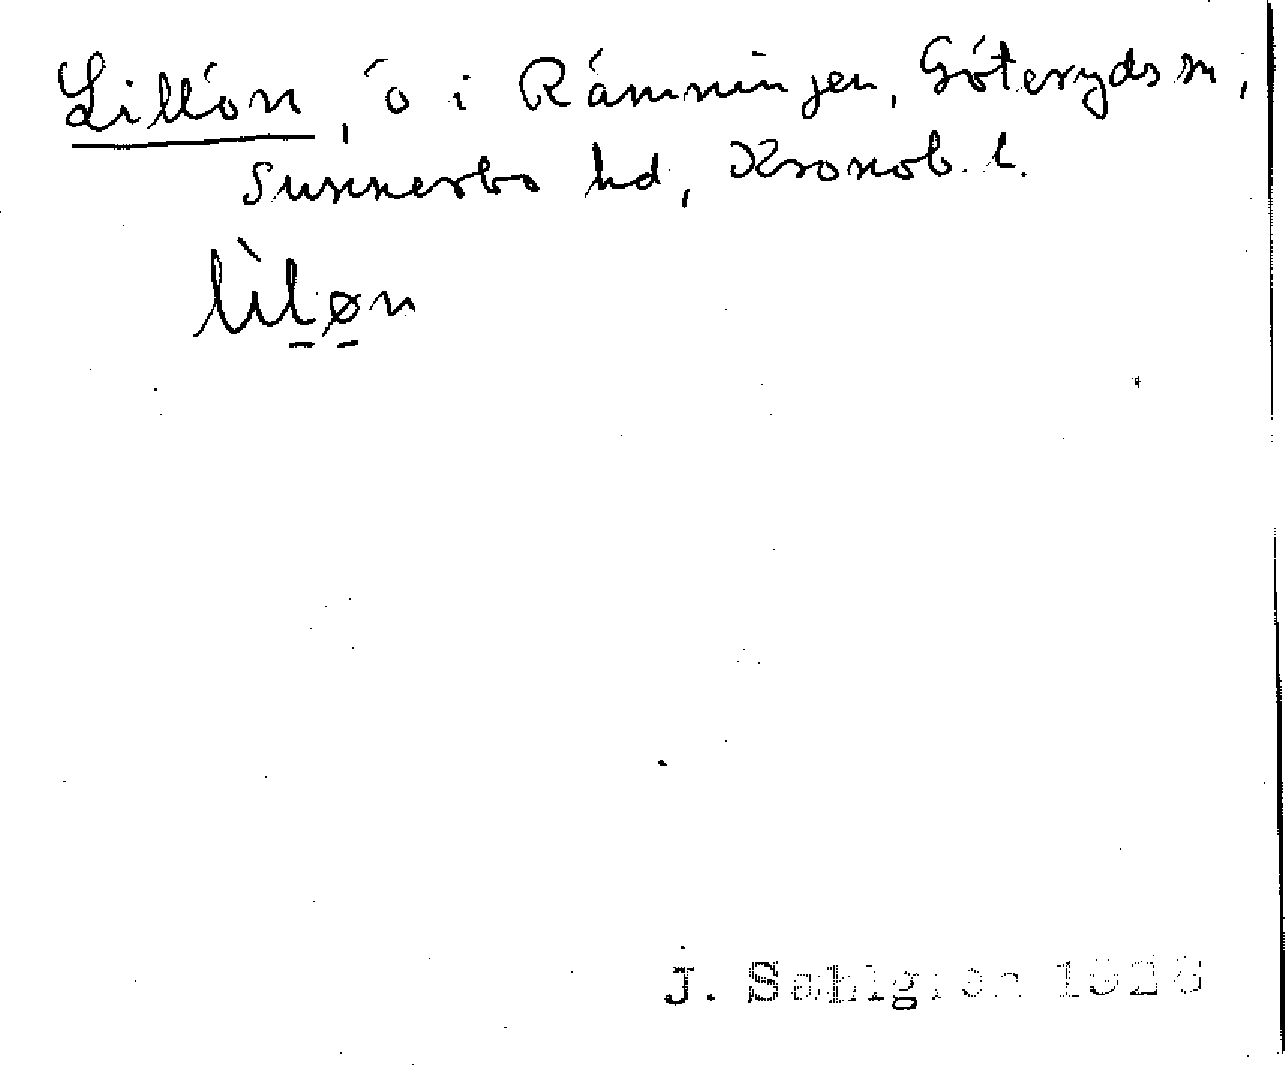 Lillön, ö i Römningen, Göteryds sn,
Sunnerbo hd, Kronob. l.
lìløn
J. Sahlgren 1928